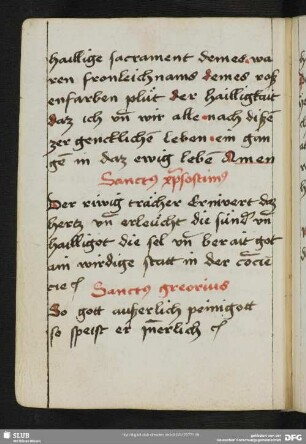 hailige sacrament deines wa
ren fronleichnams deines roß
enfarben plůt der hailligkait
daz ich vn̄ wir alle nach diße͂
zergencklichen leben ein gan
ge in daz ewig lebe͂ Amen
Sanctus
Der riwig trächer Ernwert daz
hertz vn̄ erleücht die sünd vn̄
hailligot die sel vn̄ berait got
ain wirdige statt in der
cie
Sanctus greorius
So gott außerlich peinigott
so speist er jnerlich
SLUB
DFG